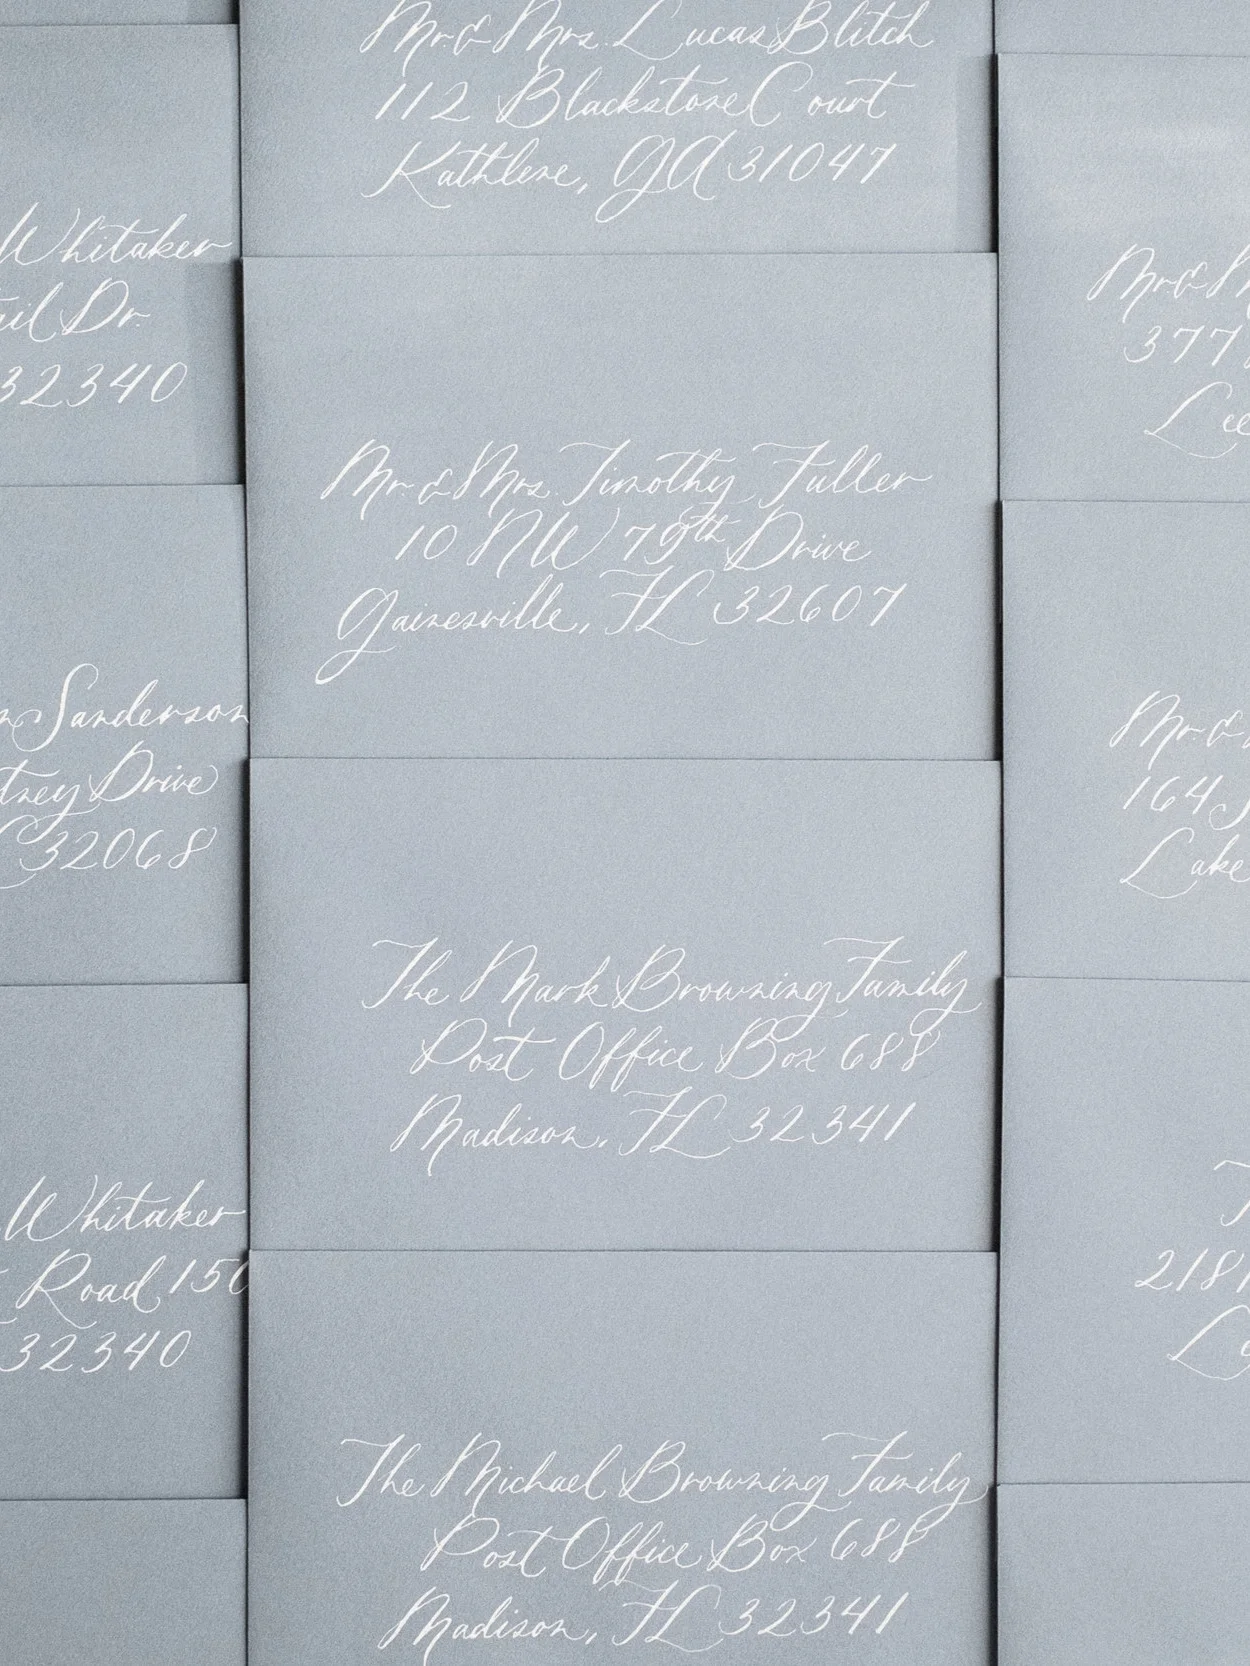 Mr. & Mrs. Lucas Blitch
112 Blackstone Court
Kathlene, GA 31047
Whitaker
Dr.
32340
Mr. & Mrs. Timothy Fuller
10 NW 79th Drive
Gainesville, FL 32607
Sanderson
Drive
32068
The Mark Browning Family
Post Office Box 688
Madison, FL 32341
Whitaker
Road 150
32340
The Michael Browning Family
Post Office Box 688
Madison, FL 32341
Mr. &
377
Lee
Mr. &
164
Lake
218